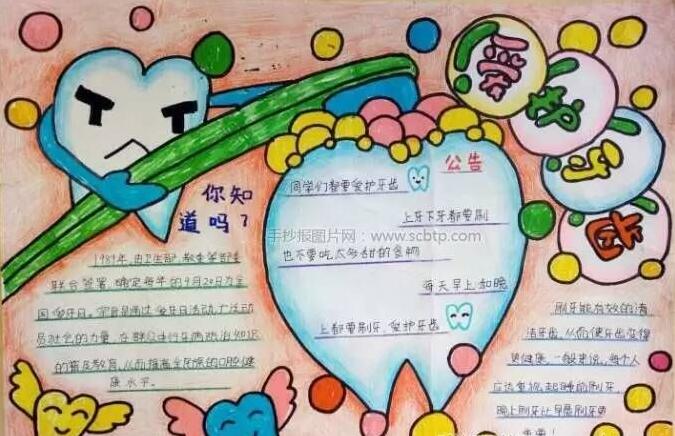 爱护牙齿
你知
道吗？
1989年，由卫生部、教委等部委
联合签署，确定每年的9月20日为全
国爱牙日。宗旨是通过爱牙日活动，广泛动
员社会的力量，在群众中进行牙病防治知识
的普及教育，从而提高全民族的口腔健
康水平。
公告
同学们都要爱护牙齿
上牙下牙都要刷
也不要吃太多甜的食物
每天早上和晚
上都要刷牙，爱护牙齿
手抄报图片网：www.scbtp.com
刷牙能有效的清
洁牙齿，从而使牙齿变得
更健康，一般来说，每个人
应该重视起睡前刷牙，
晚上刷牙比早晨刷牙更
重要！